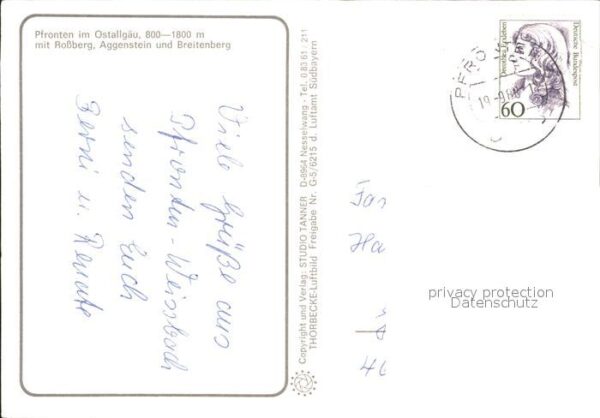 Pfronten im Ostallgäu, 800—1800 m
mit Roßberg, Aggenstein und Breitenberg
Viele Grüße aus
Pfronten-Weissbach
senden Euch
Berni u. Renate
Copyright und Verlag: STUDIO TANNER D-8964 Nesselwang · Tel. 0 83 61 / 211
THORBECKE-Luftbild Freigabe Nr. G-5/6215 d. Luftamt Südbayern
Deutsche Bundespost
60
PFRO
Fa
Ha
40
privacy protection
Datenschutz